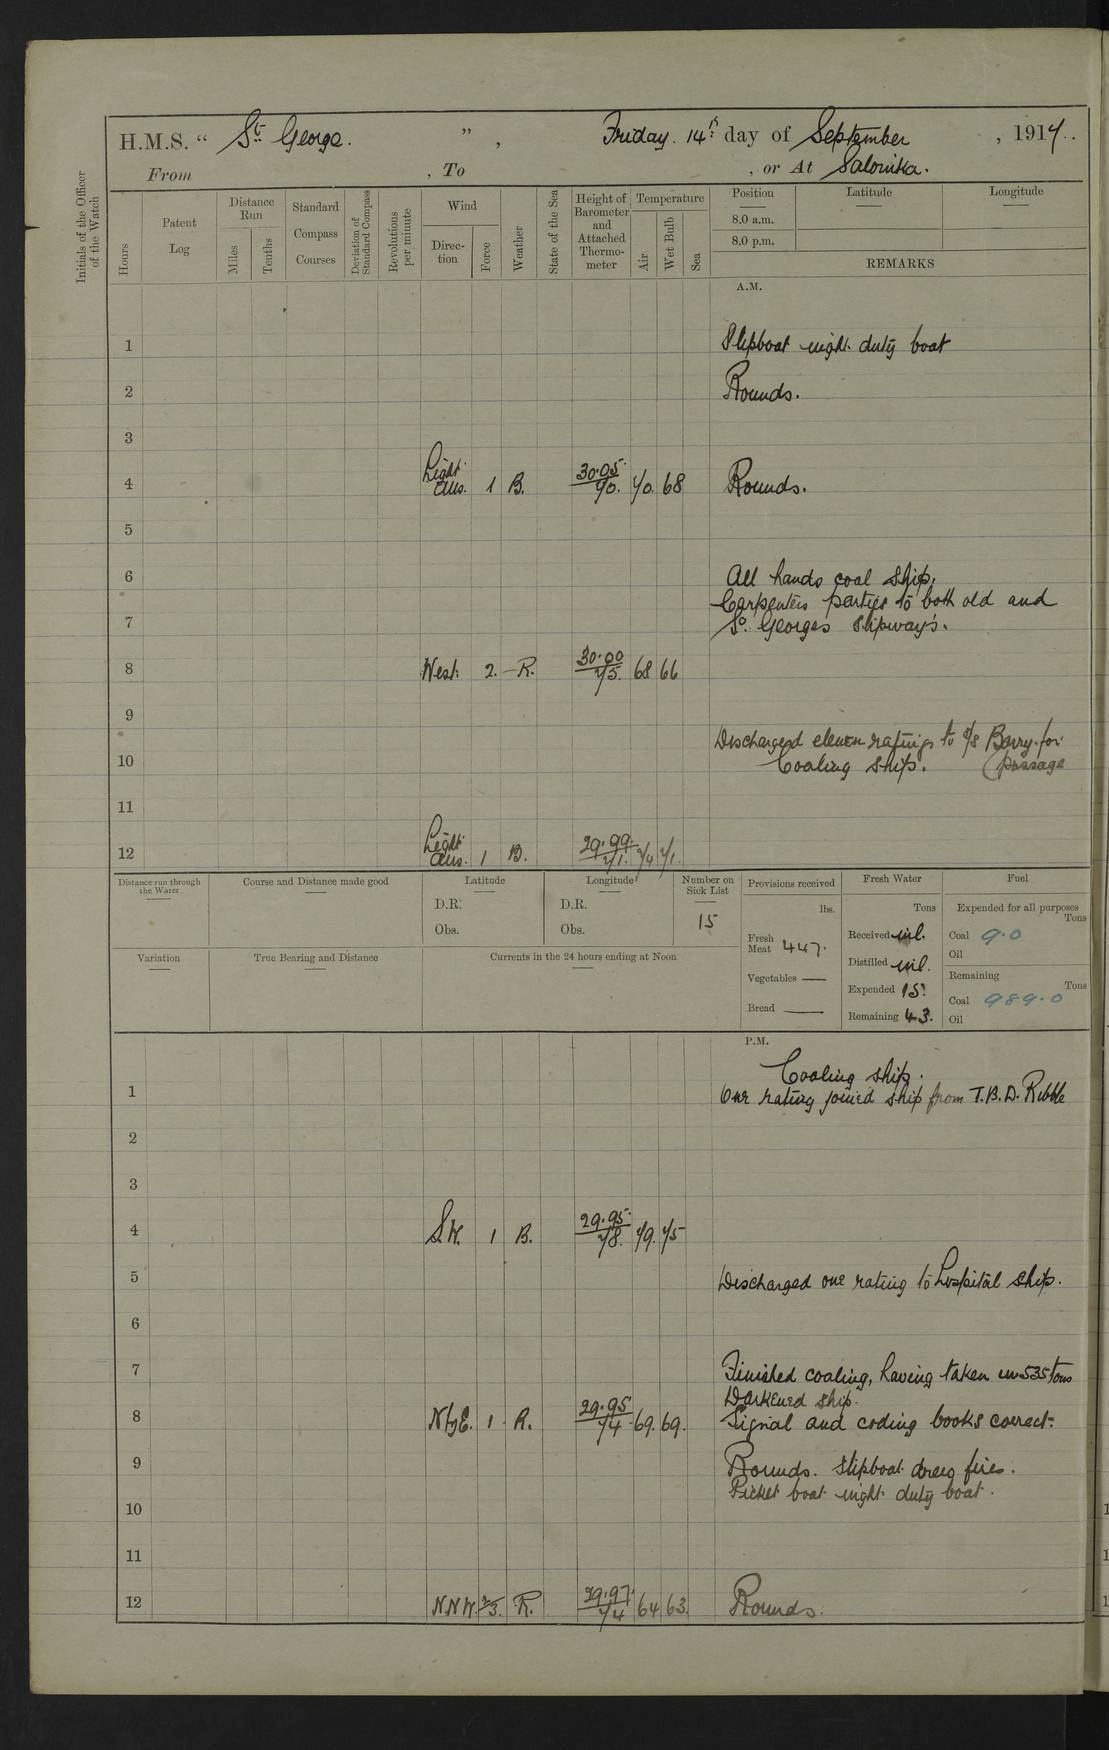 H.M.S. “ St. George. ” , Friday. 14th day of September , 1917.
From , To , or At Salonika.
Initials of the Officer of the Watch
Hours
Patent Log
Distance Run
Miles
Tenths
Standard Compass Courses
Deviation of Standard Compass
Revolutions per minute
Wind
Direction
Force
Weather
State of the Sea
Height of Barometer and Attached Thermometer
Temperature
Air
Wet Bulb
Sea
Position
Latitude
Longitude
8.0 a.m.
8.0 p.m.
REMARKS
A.M.
1 Slipboat night duty boat
2 Rounds.
3
4 Light airs. 1 B. 30.05 70. 70. 68 Rounds.
5
6 All hands coal ship.
Carpenters parties to both old and
7 St. George's slipway's.
8 West. 2. R. 30.00 75. 68 66
9
Discharged eleven ratings to S/S Barry for
10 Coaling ship. (passage
11
12 Light airs. 1 B. 29.99. 71. 74 71.
Distance run through the Water
Course and Distance made good
Latitude
D.R.
Obs.
Longitude
D.R.
Obs.
Number on Sick List
15
Provisions received
lbs.
Fresh Meat 447.
Vegetables —
Bread —
Fresh Water
Tons
Received nil.
Distilled nil.
Expended 15.
Remaining 43.
Fuel
Expended for all purposes
Tons
Coal 9.0
Oil
Remaining
Tons
Coal 989.0
Oil
Variation
True Bearing and Distance
Currents in the 24 hours ending at Noon
P.M.
Coaling ship.
1 One rating joined ship from T.B.D. Ribble
2
3
4 S.W. 1 B. 29.95. 78. 79. 75
5 Discharged one rating to hospital ship.
6
7 Finished coaling, having taken in 535 tons
Darkened ship.
8 N by E. 1 R. 29.95 74 69. 69. Signal and coding books correct.
9 Rounds. Slipboat drew fires.
Picket boat night duty boat.
10
11
12 N N W. 2/3. R. 29.97. 74 64 63. Rounds.